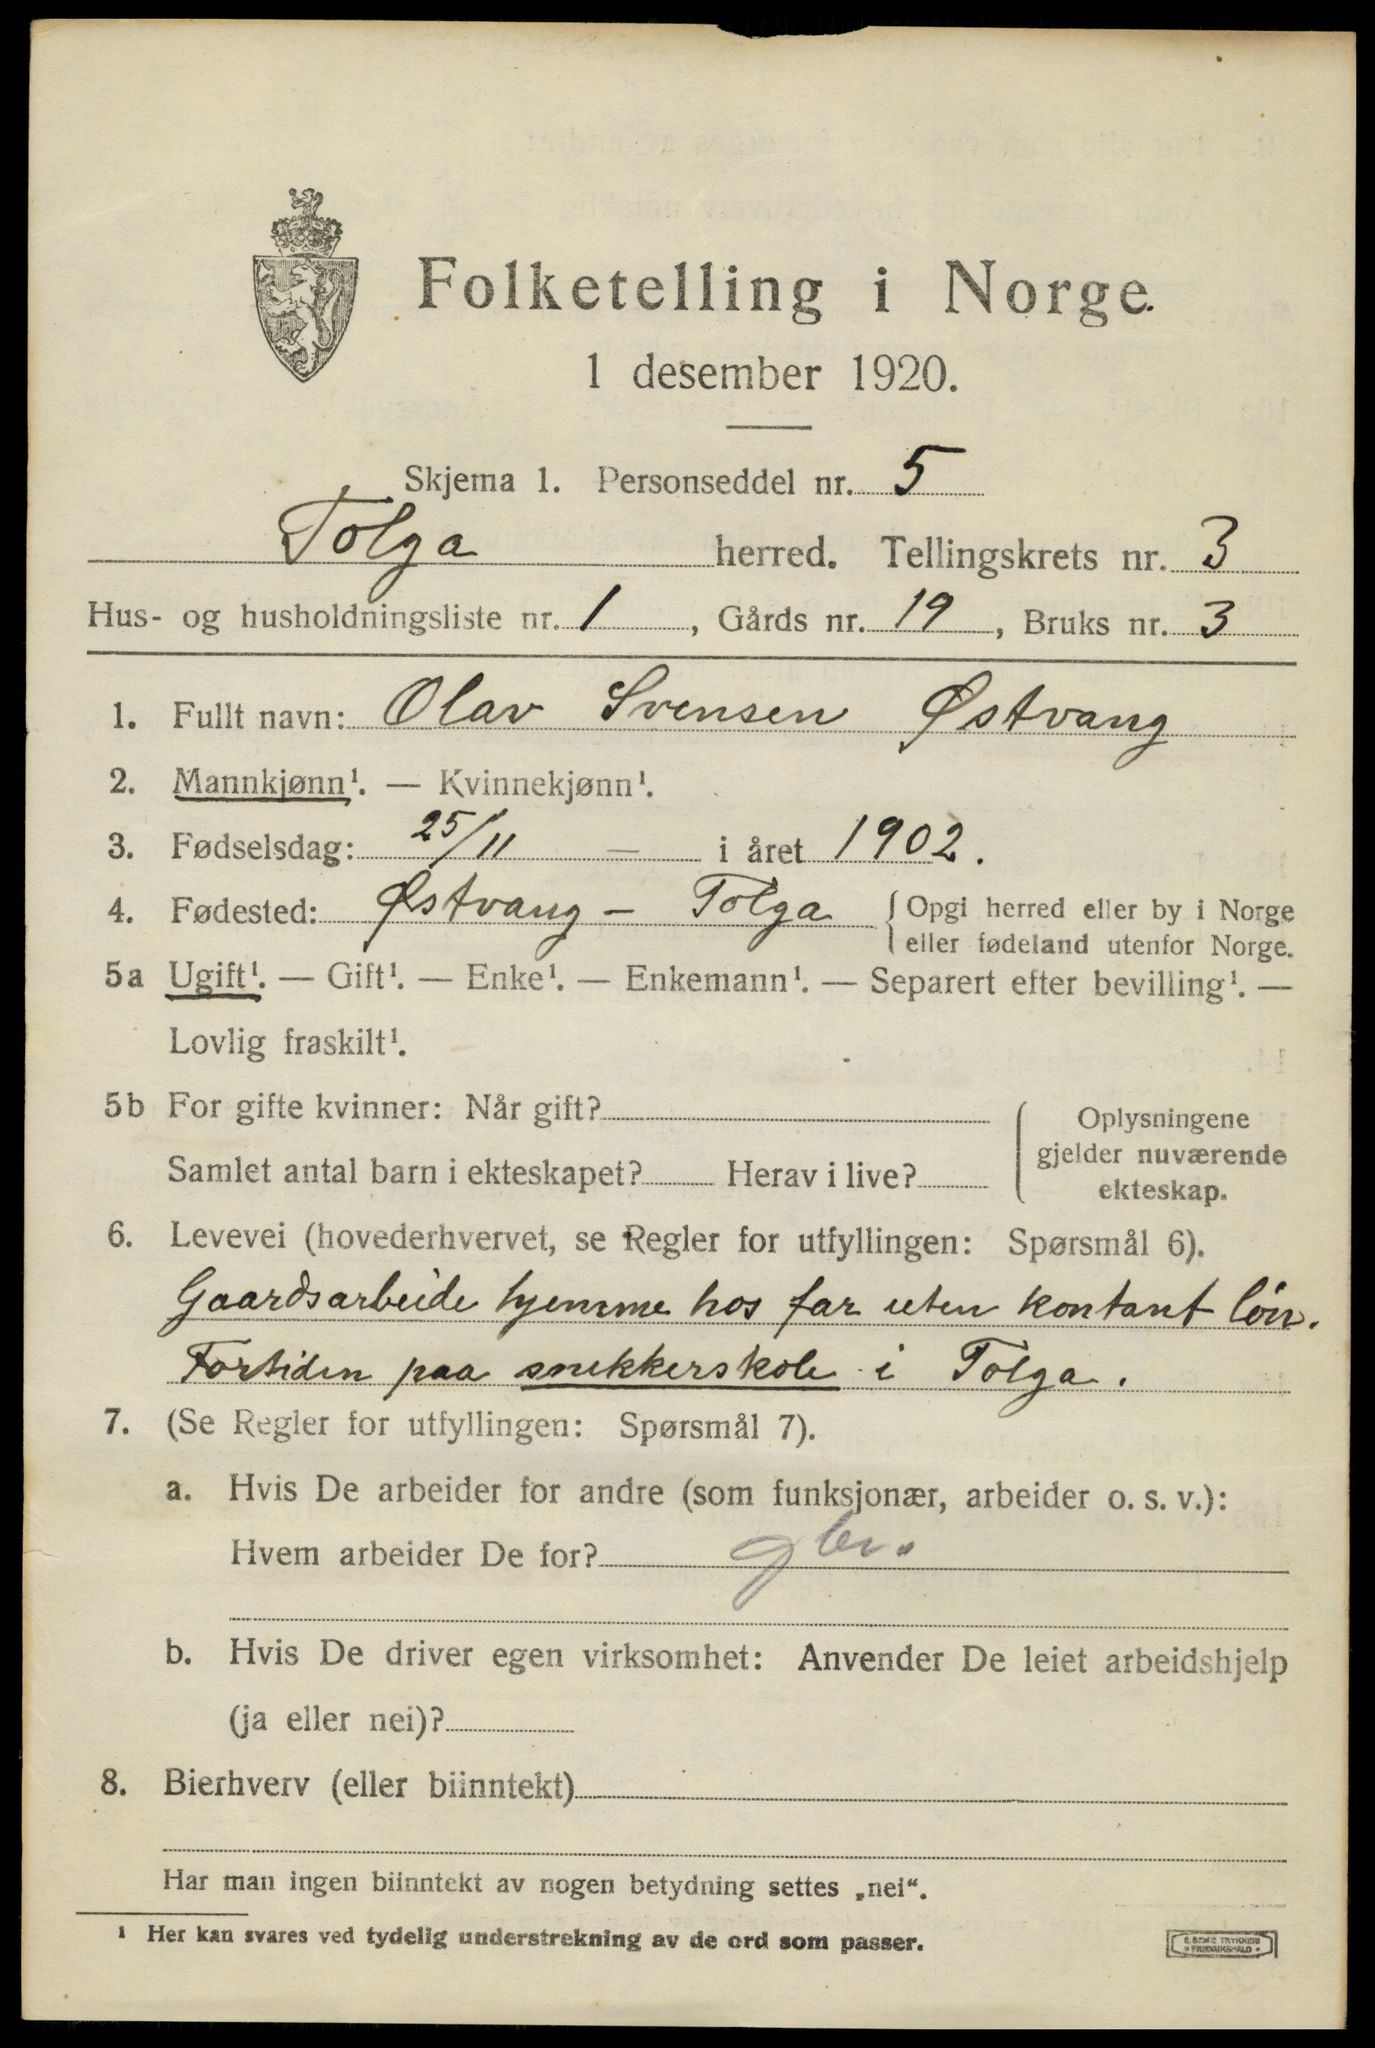 Folketelling i Norge.
1 desember 1920.
Skjema 1. Personseddel nr. 5
Tolga herred. Tellingskrets nr. 3
Hus- og husholdningsliste nr. 1, Gårds nr. 19, Bruks nr. 3
1. Fullt navn: Olav Svensen Østvang
2. Mannkjønn¹. — Kvinnekjønn¹.
3. Fødselsdag: 25/11 — i året 1902.
4. Fødested: Østvang – Tolga { Opgi herred eller by i Norge
eller fødeland utenfor Norge.
5a Ugift¹. — Gift¹. — Enke¹. — Enkemann¹. — Separert efter bevilling¹. —
Lovlig fraskilt¹.
5b For gifte kvinner: Når gift?
Samlet antal barn i ekteskapet? Herav i live?
Oplysningene
gjelder nuværende
ekteskap.
6. Levevei (hovederhvervet, se Regler for utfyllingen: Spørsmål 6).
Gaardsarbeide hjemme hos far uten kontant lön.
Fortiden paa snekkerskole i Tolga.
7. (Se Regler for utfyllingen: Spørsmål 7).
a. Hvis De arbeider for andre (som funksjonær, arbeider o. s. v.):
Hvem arbeider De for?
b. Hvis De driver egen virksomhet: Anvender De leiet arbeidshjelp
(ja eller nei)?
8. Bierhverv (eller biinntekt)
Har man ingen biinntekt av nogen betydning settes „nei“.
¹ Her kan svares ved tydelig understrekning av de ord som passer.